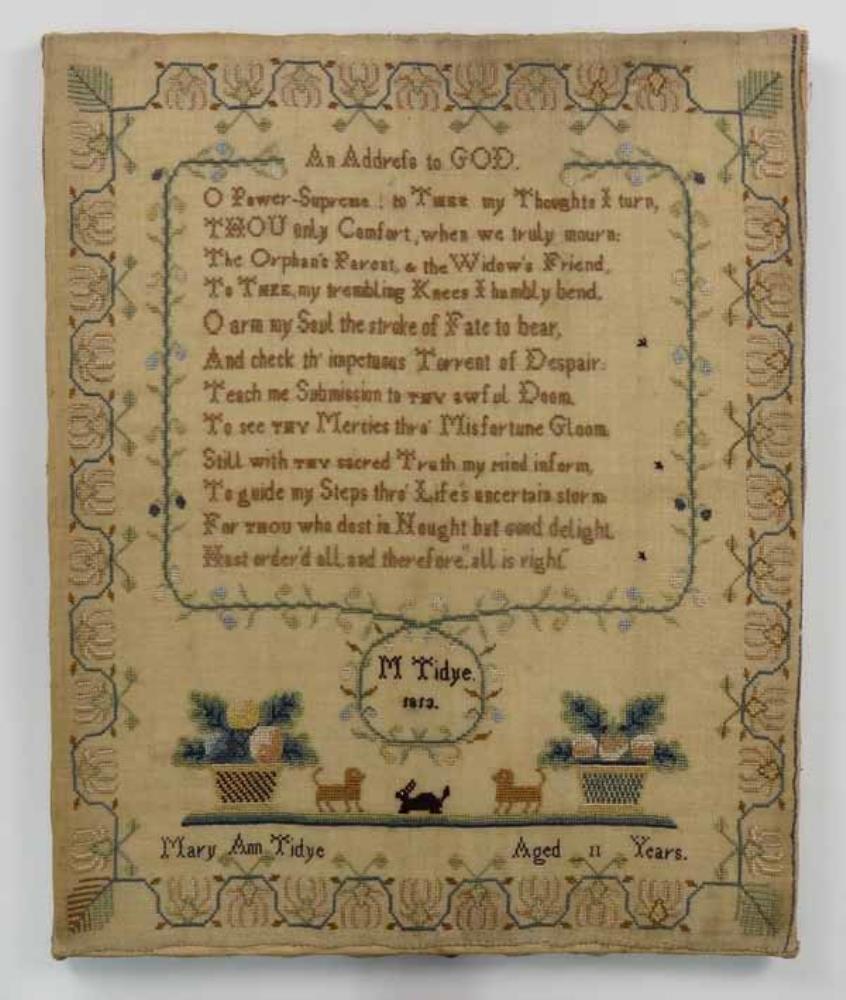 An Addreſs to GOD.
O Power-Supreme! to THEE my Thoughts I turn,
THOU only Comfort, when we truly mourn:
The Orphan's Parent, & the Widow's Friend,
To THEE, my trembling Knees I humbly bend.
O arm my Soul the stroke of Fate to bear,
And check th' impetuous Torrent of Despair:
Teach me Submission to THY awful Doom,
To see THY Mercies thro' Misfortune Gloom.
Still with THY sacred Truth my mind inform,
To guide my Steps thro' Life's uncertain storm
For THOU who dost in Nought but good delight,
Hast order'd all, and therefore, "all is right."
M Tidye.
1813.
Mary Ann Tidye Aged 11 Years.